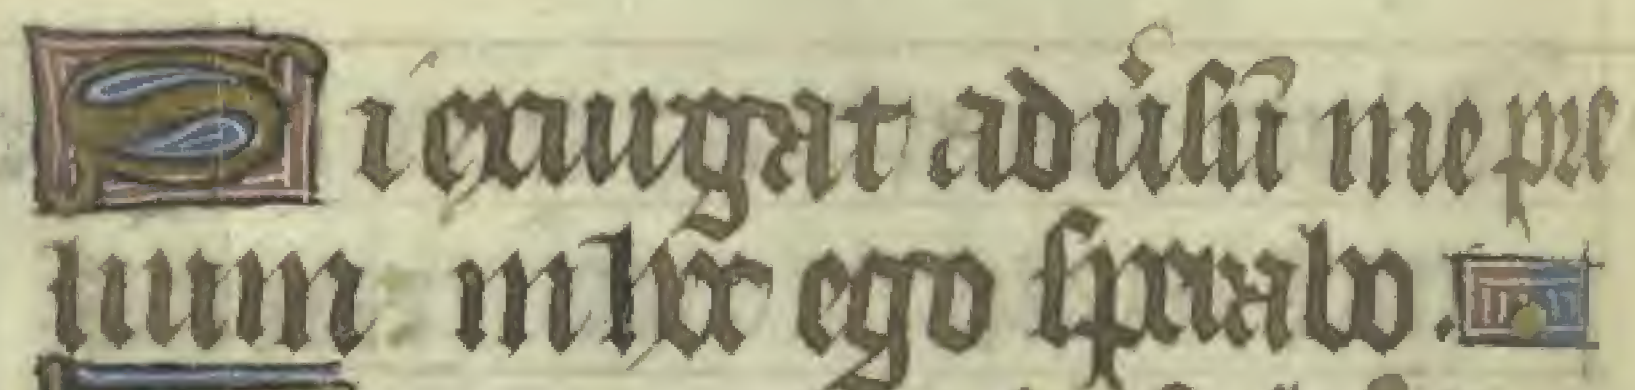 Si exurgat adũsũ me pre
lium: in hoc ego sperabo.